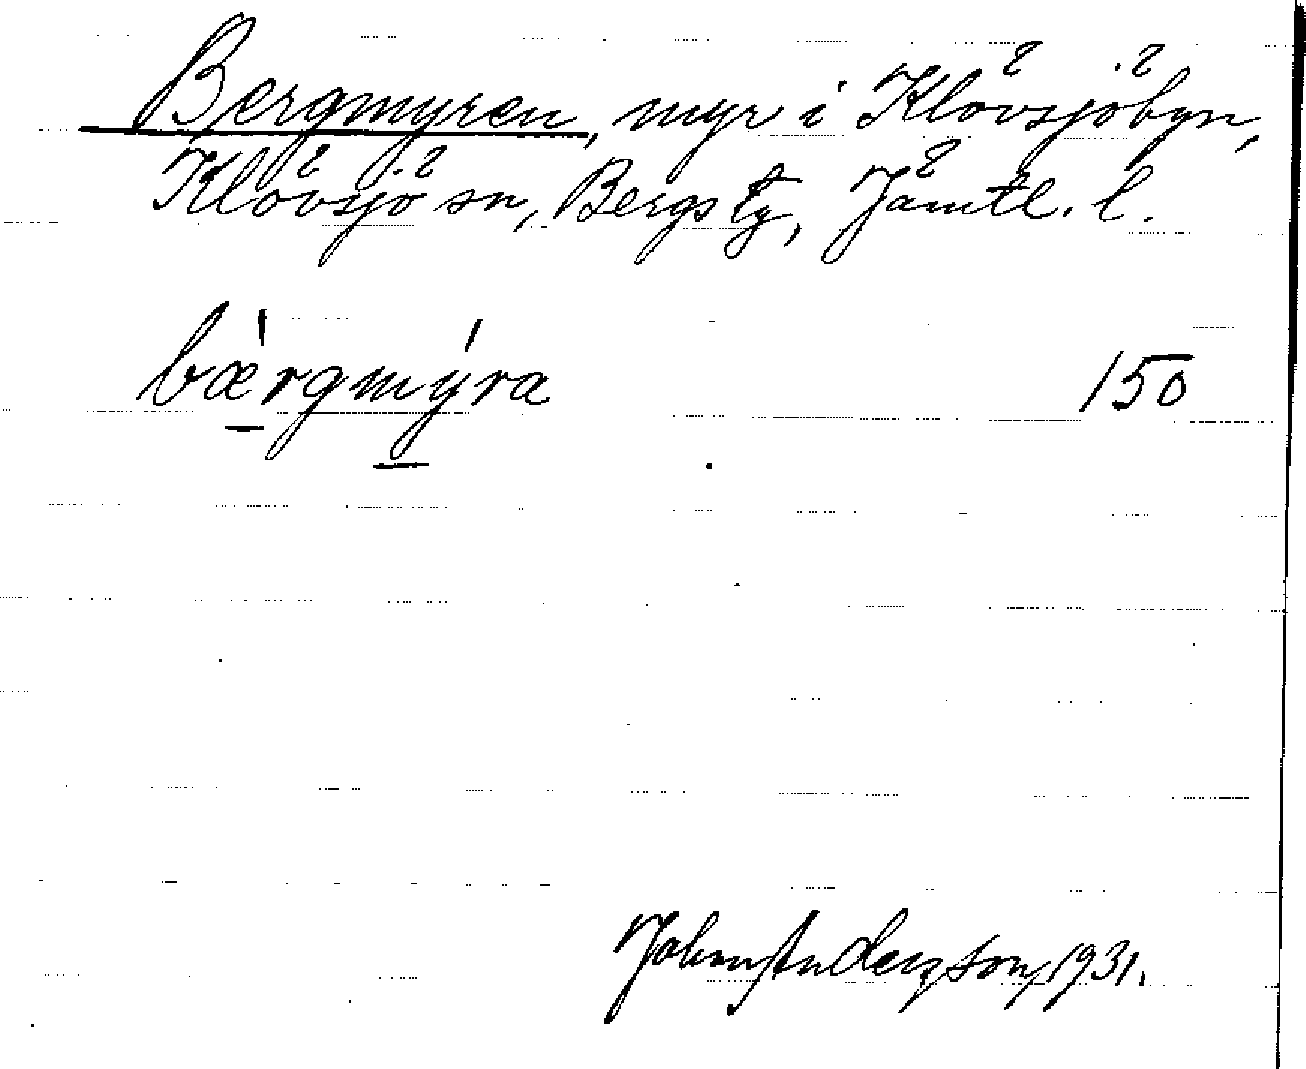 Bergmyren, myr i Klövsjöbyn,
Klövsjö sn, Bergs tg, Jämtl. l.
bæ̀rgmýra 150
John Andersson, 1931.